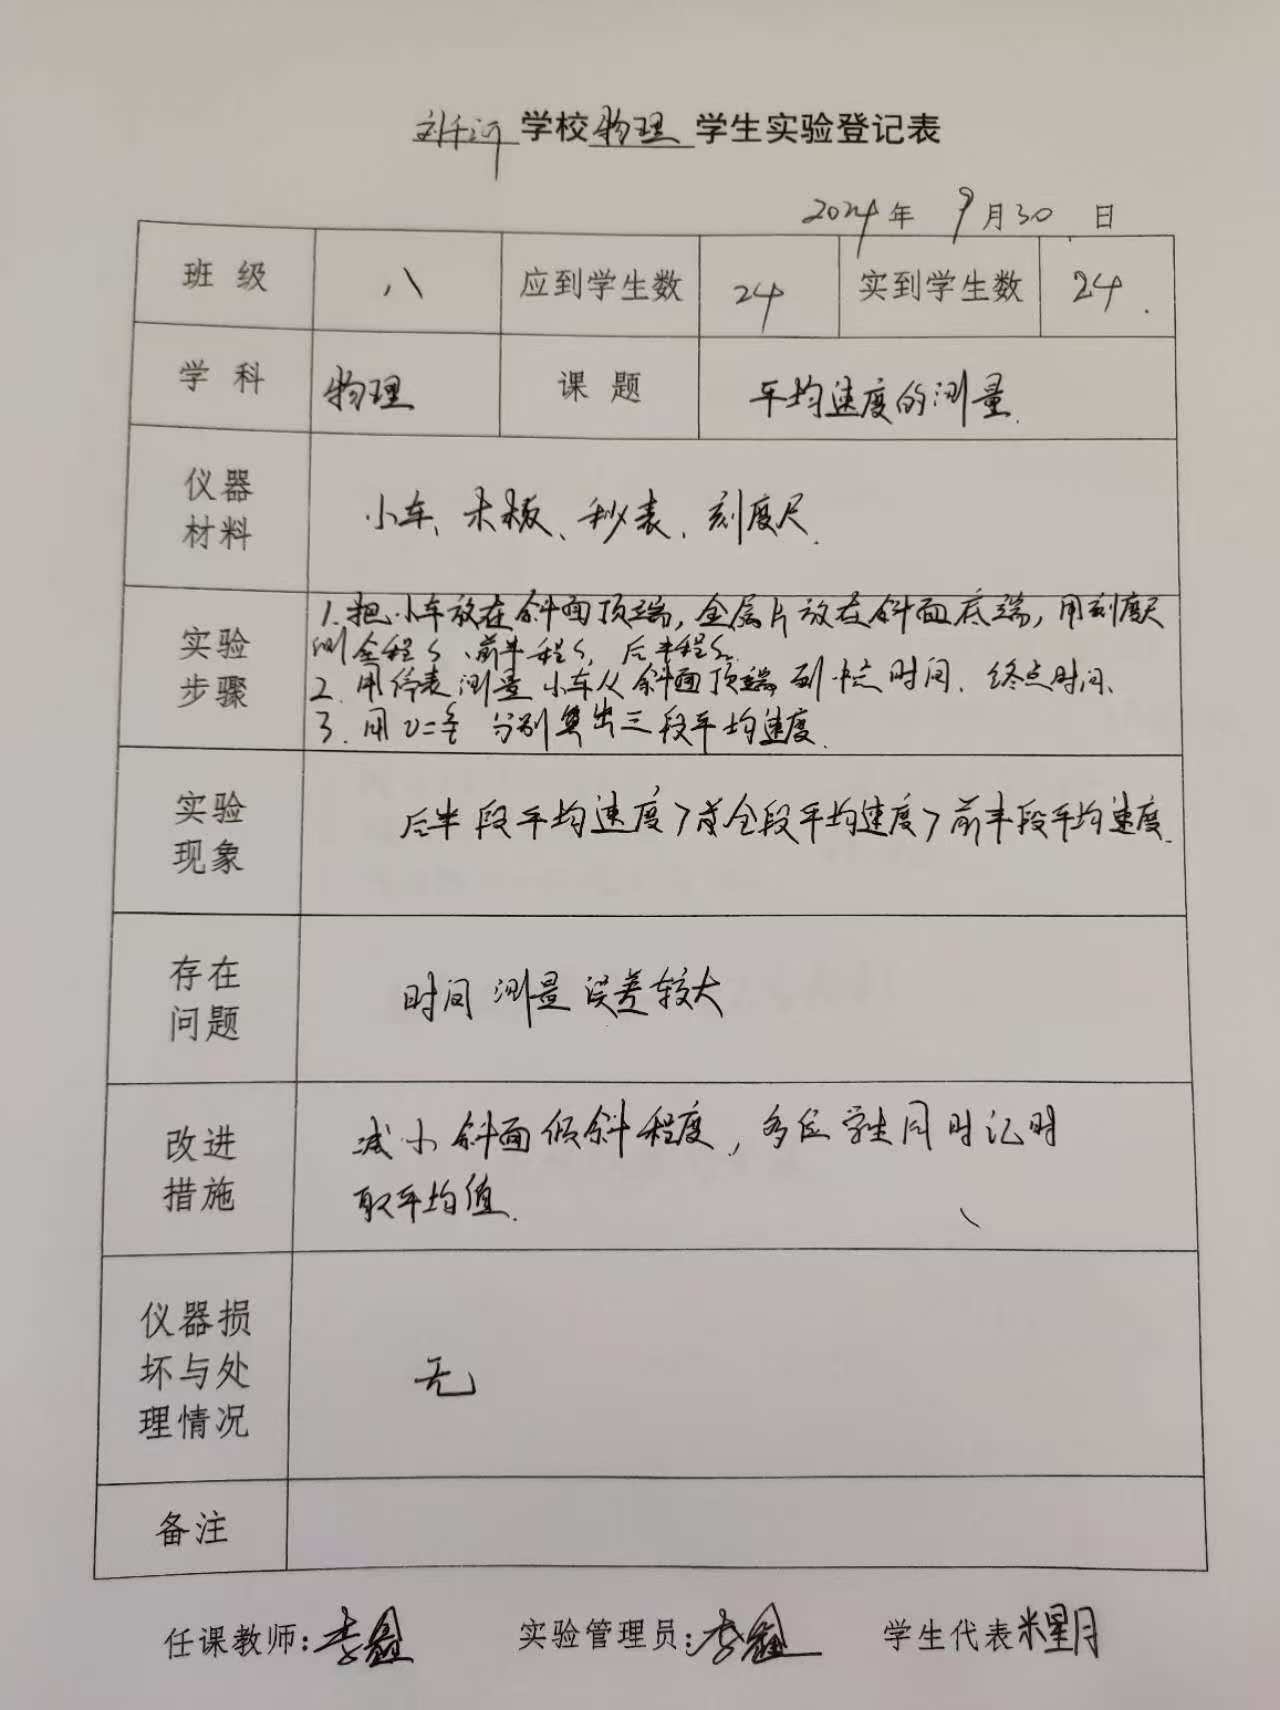 学校物理 学生实验登记表
2024年 9月30 日
班 级 八 应到学生数 24 实到学生数 24.
学 科 物理 课 题 平均速度的测量.
仪器
材料
小车、木板、秒表、刻度尺.
实验
步骤
1.把小车放在斜面顶端,金属片放在斜面底端,用刻度尺
测全程s、前半程s₁ 后半程s₂.
2.用停表测量小车从斜面顶端到中点时间、终点时间、
3.用v=s/t 分别算出三段平均速度.
实验
现象
后半段平均速度>全段平均速度>前半段平均速度.
存在
问题
时间测量误差较大
改进
措施
减小斜面倾斜程度,多位学生同时记时
取平均值.
仪器损
坏与处
理情况
无
备注
任课教师:李鑫 实验管理员:李鑫 学生代表米星月